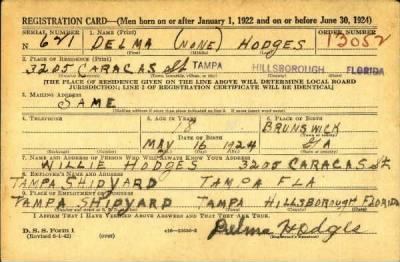 REGISTRATION CARD—(Men born on or after January 1, 1922 and on or before June 30, 1924)
SERIAL NUMBER 1. NAME (Print) ORDER NUMBER
N 621 DELMA (NONE) HODGES 13052
2. PLACE OF RESIDENCE (Print)
3205 CARACAS St TAMPA HILLSBOROUGH FLORIDA
[THE PLACE OF RESIDENCE GIVEN ON THE LINE ABOVE WILL DETERMINE LOCAL BOARD
JURISDICTION; LINE 2 OF REGISTRATION CERTIFICATE WILL BE IDENTICAL]
3. MAILING ADDRESS
SAME
[Mailing address if other than place indicated on line 2. If same insert word same]
4. TELEPHONE 5. AGE IN YEARS 6. PLACE OF BIRTH
18 BRUNSWICK
DATE OF BIRTH (Town or county)
MAY 16 1924 GA
(Exchange) (Number) (Mo.) (Day) (Yr.) (State or country)
7. NAME AND ADDRESS OF PERSON WHO WILL ALWAYS KNOW YOUR ADDRESS
WILLIE HODGES 3205 CARACAS St.
8. EMPLOYER'S NAME AND ADDRESS
TAMPA SHIPYARD TAMPA FLA
9. PLACE OF EMPLOYMENT OR BUSINESS
TAMPA SHIPYARD TAMPA HILLSBOROUGH FLORIDA
I AFFIRM THAT I HAVE VERIFIED ABOVE ANSWERS AND THAT THEY ARE TRUE.
D. S. S. Form 1
(Revised 6-1-42) (over) Delma Hodges